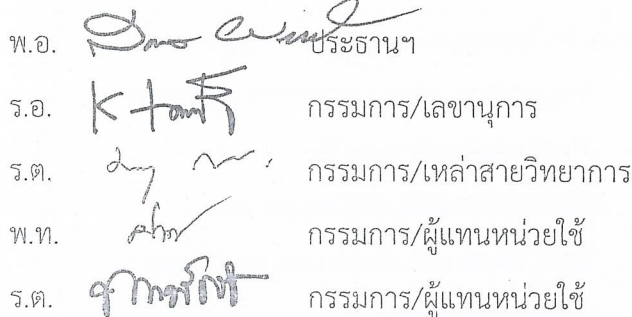 พ.อ. ประธานฯ
ร.อ. กรรมการ/เลขานุการ
ร.ต. กรรมการ/เหล่าสายวิทยาการ
พ.ท. กรรมการ/ผู้แทนหน่วยใช้
ร.ต. กรรมการ/ผู้แทนหน่วยใช้